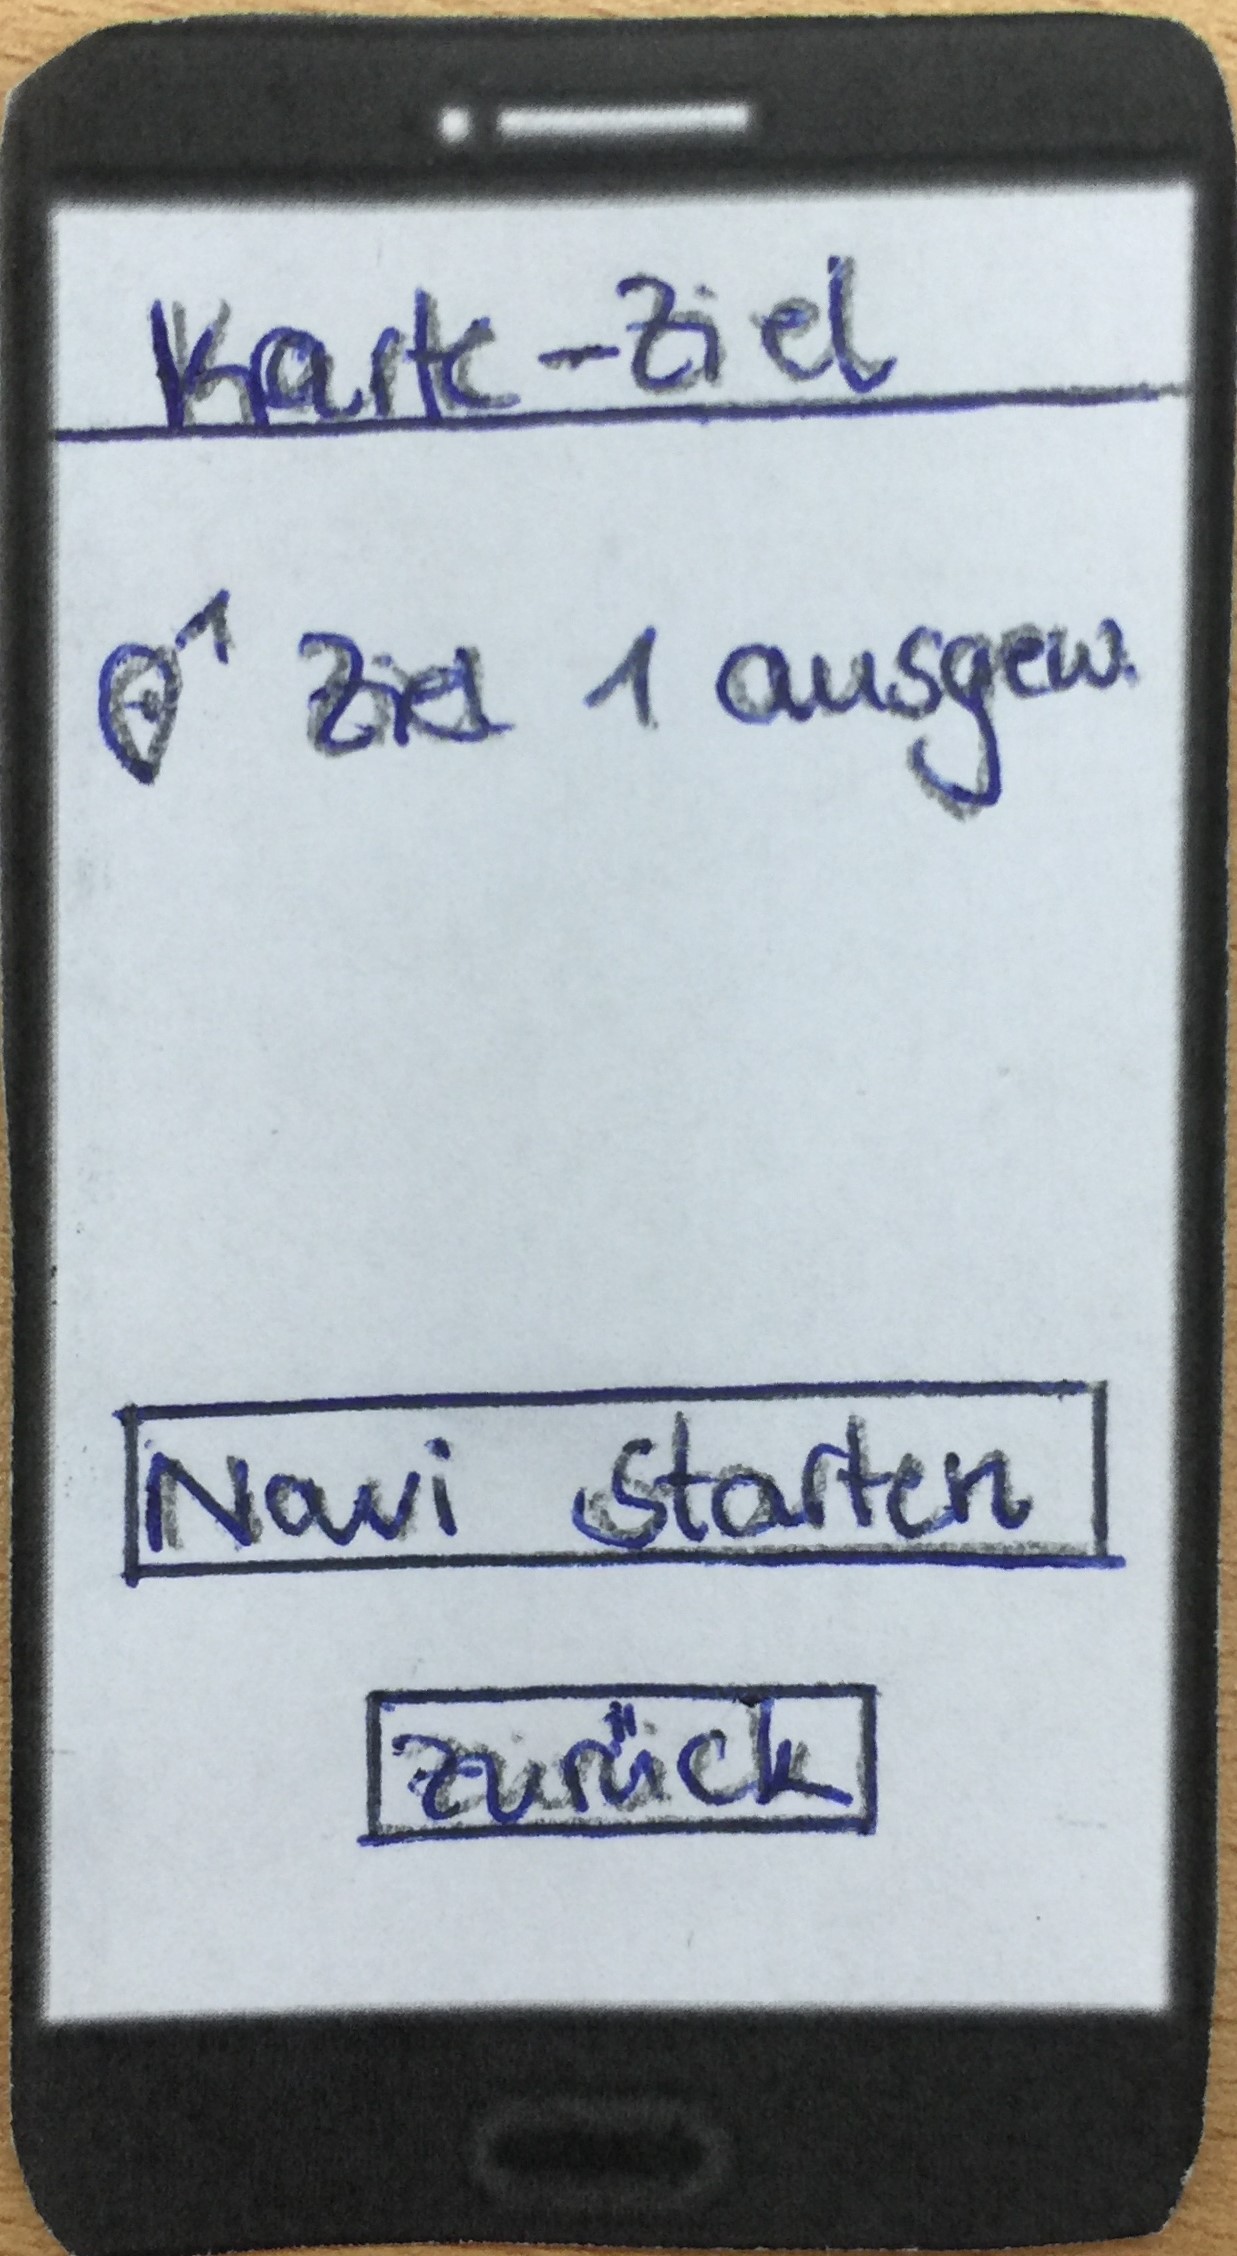 Karte-Ziel
1 Ziel 1 ausgew.
Navi starten
zurück